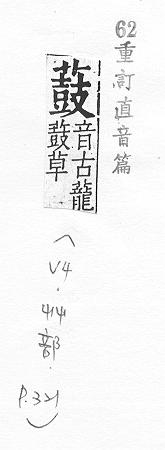 62重訂直音篇
薣
音古龍
鼓草
(V4.艸部.P.321)